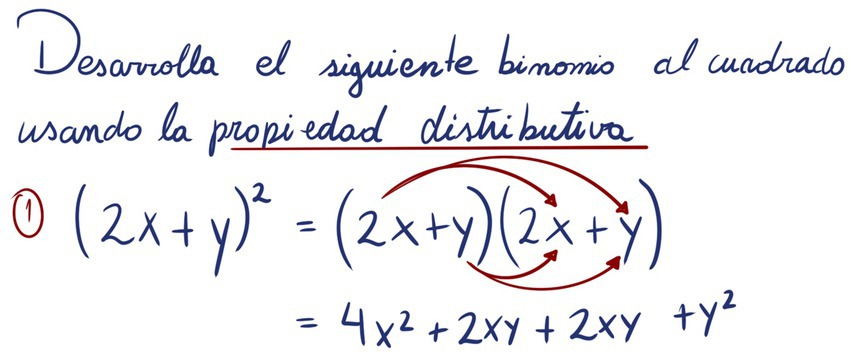 Desarrolla el siguiente binomio al cuadrado
usando la propiedad distributiva
① (2x + y)² = (2x+y)(2x + y)
= 4x² + 2xy + 2xy + y²